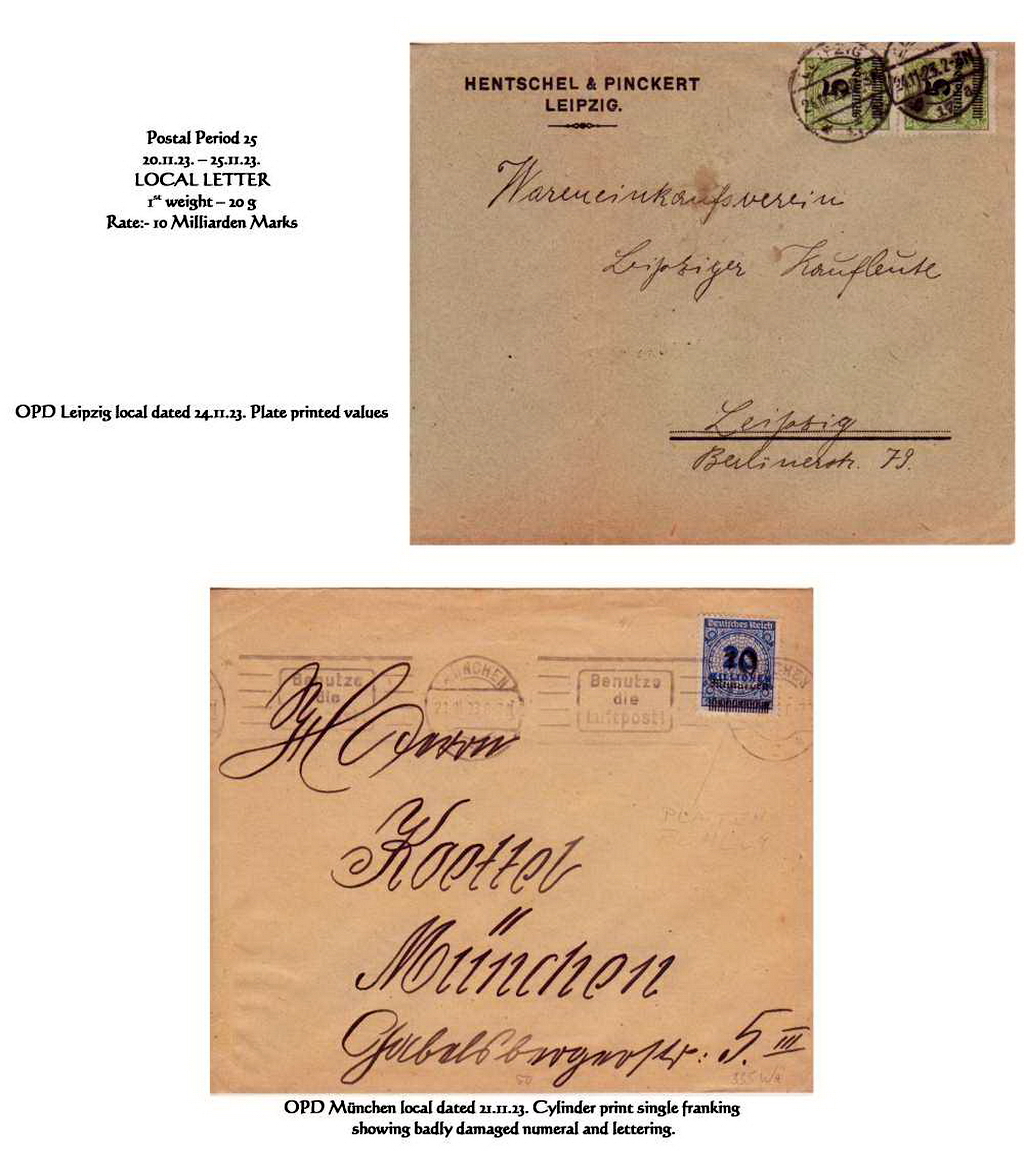 Postal Period 25
20.11.23. – 25.11.23.
LOCAL LETTER
1st weight – 20 g
Rate:- 10 Milliarden Marks
HENTSCHEL & PINCKERT
LEIPZIG.
LEIPZIG
24.11.23. 2-3N
5
5
Wareneinkaufsverein
Leipziger Kaufleute
Leipzig
Berlinerstr. 79.
OPD Leipzig local dated 24.11.23. Plate printed values
Deutsches Reich
MÜNCHEN
Benutze
die
Benutze
die
Luftpost!
Herrn
Koettel
München
Gabelsbergerstr: 5. III
50
OPD München local dated 21.11.23. Cylinder print single franking
showing badly damaged numeral and lettering.